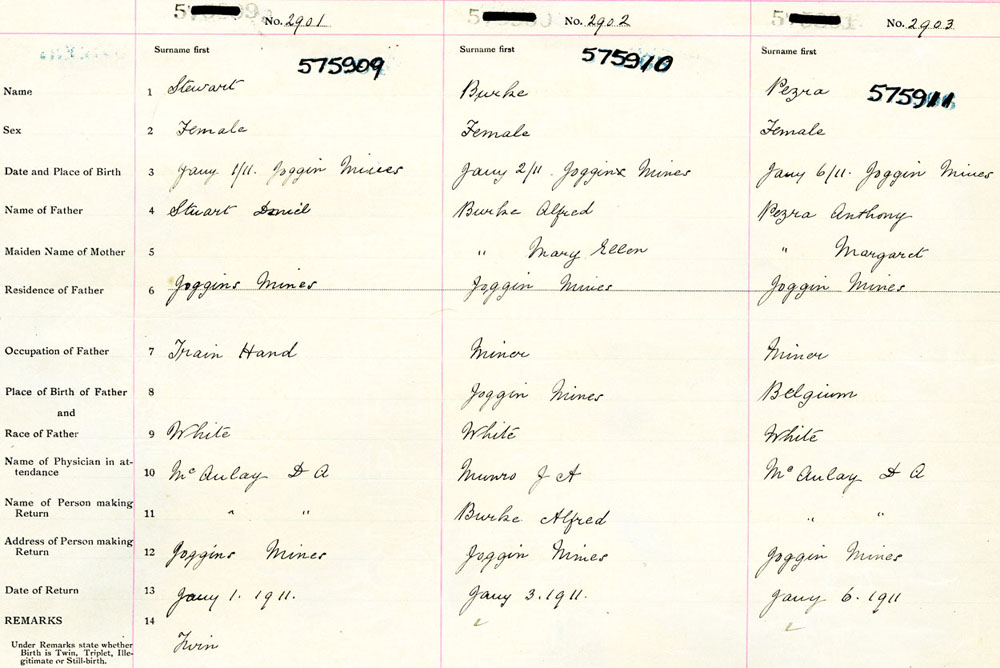 No. 2901 No. 2902 No. 2903
Surname first Surname first Surname first
575909 575910 575911
Name 1 Stewart Burke Pezra
Sex 2 Female Female Female
Date and Place of Birth 3 Jany 1/11. Joggin Mines Jany 2/11. Joggins Mines Jany 6/11. Joggin Mines
Name of Father 4 Stuart Daniel Burke Alfred Pezra Anthony
Maiden Name of Mother 5 " Mary Ellen " Margaret
Residence of Father 6 Joggins Mines Joggin Mines Joggin Mines
Occupation of Father 7 Train Hand Miner Miner
Place of Birth of Father 8 Joggin Mines Belgium
and
Race of Father 9 White White White
Name of Physician in at-
tendance 10 McAulay D A Munro J A McAulay D A
Name of Person making
Return 11 " " Burke Alfred " "
Address of Person making
Return 12 Joggins Mines Joggin Mines Joggin Mines
Date of Return 13 Jany 1. 1911. Jany 3. 1911. Jany 6. 1911
REMARKS 14
Under Remarks state whether
Birth is Twin, Triplet, Ille-
gitimate or Still-birth.
Twin